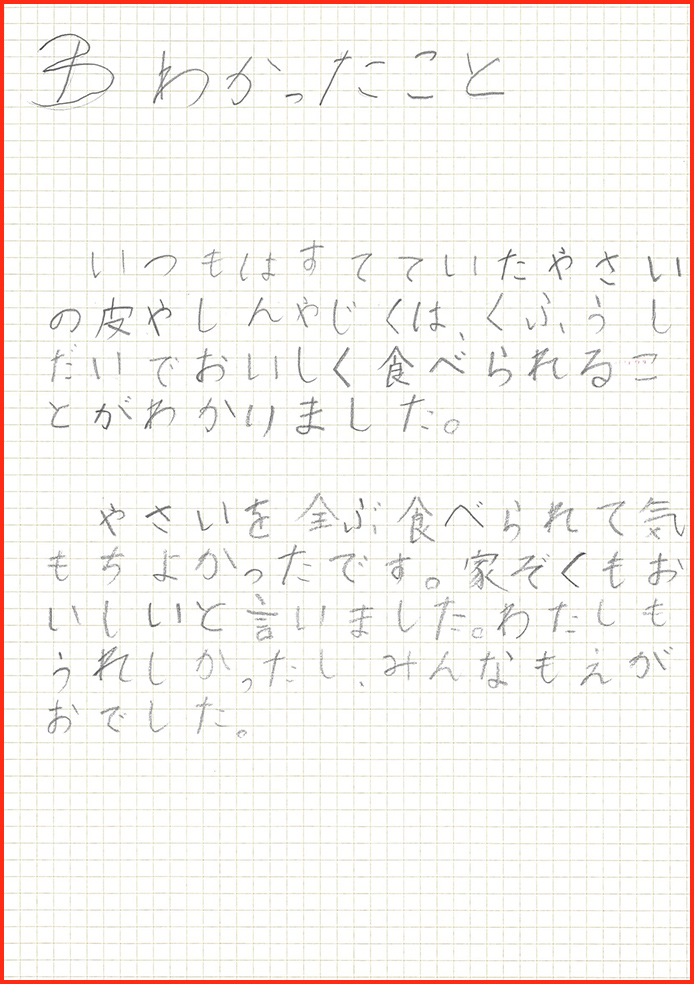 わかったこと
いつもはすてていたやさい
の皮やしんやじくは、くふうし
だいでおいしく食べられるこ
とがわかりました。
やさいを全ぶ食べられて気
もちよかったです。家ぞくもお
いしいと言いました。わたしも
うれしかったし、みんなもえが
おでした。